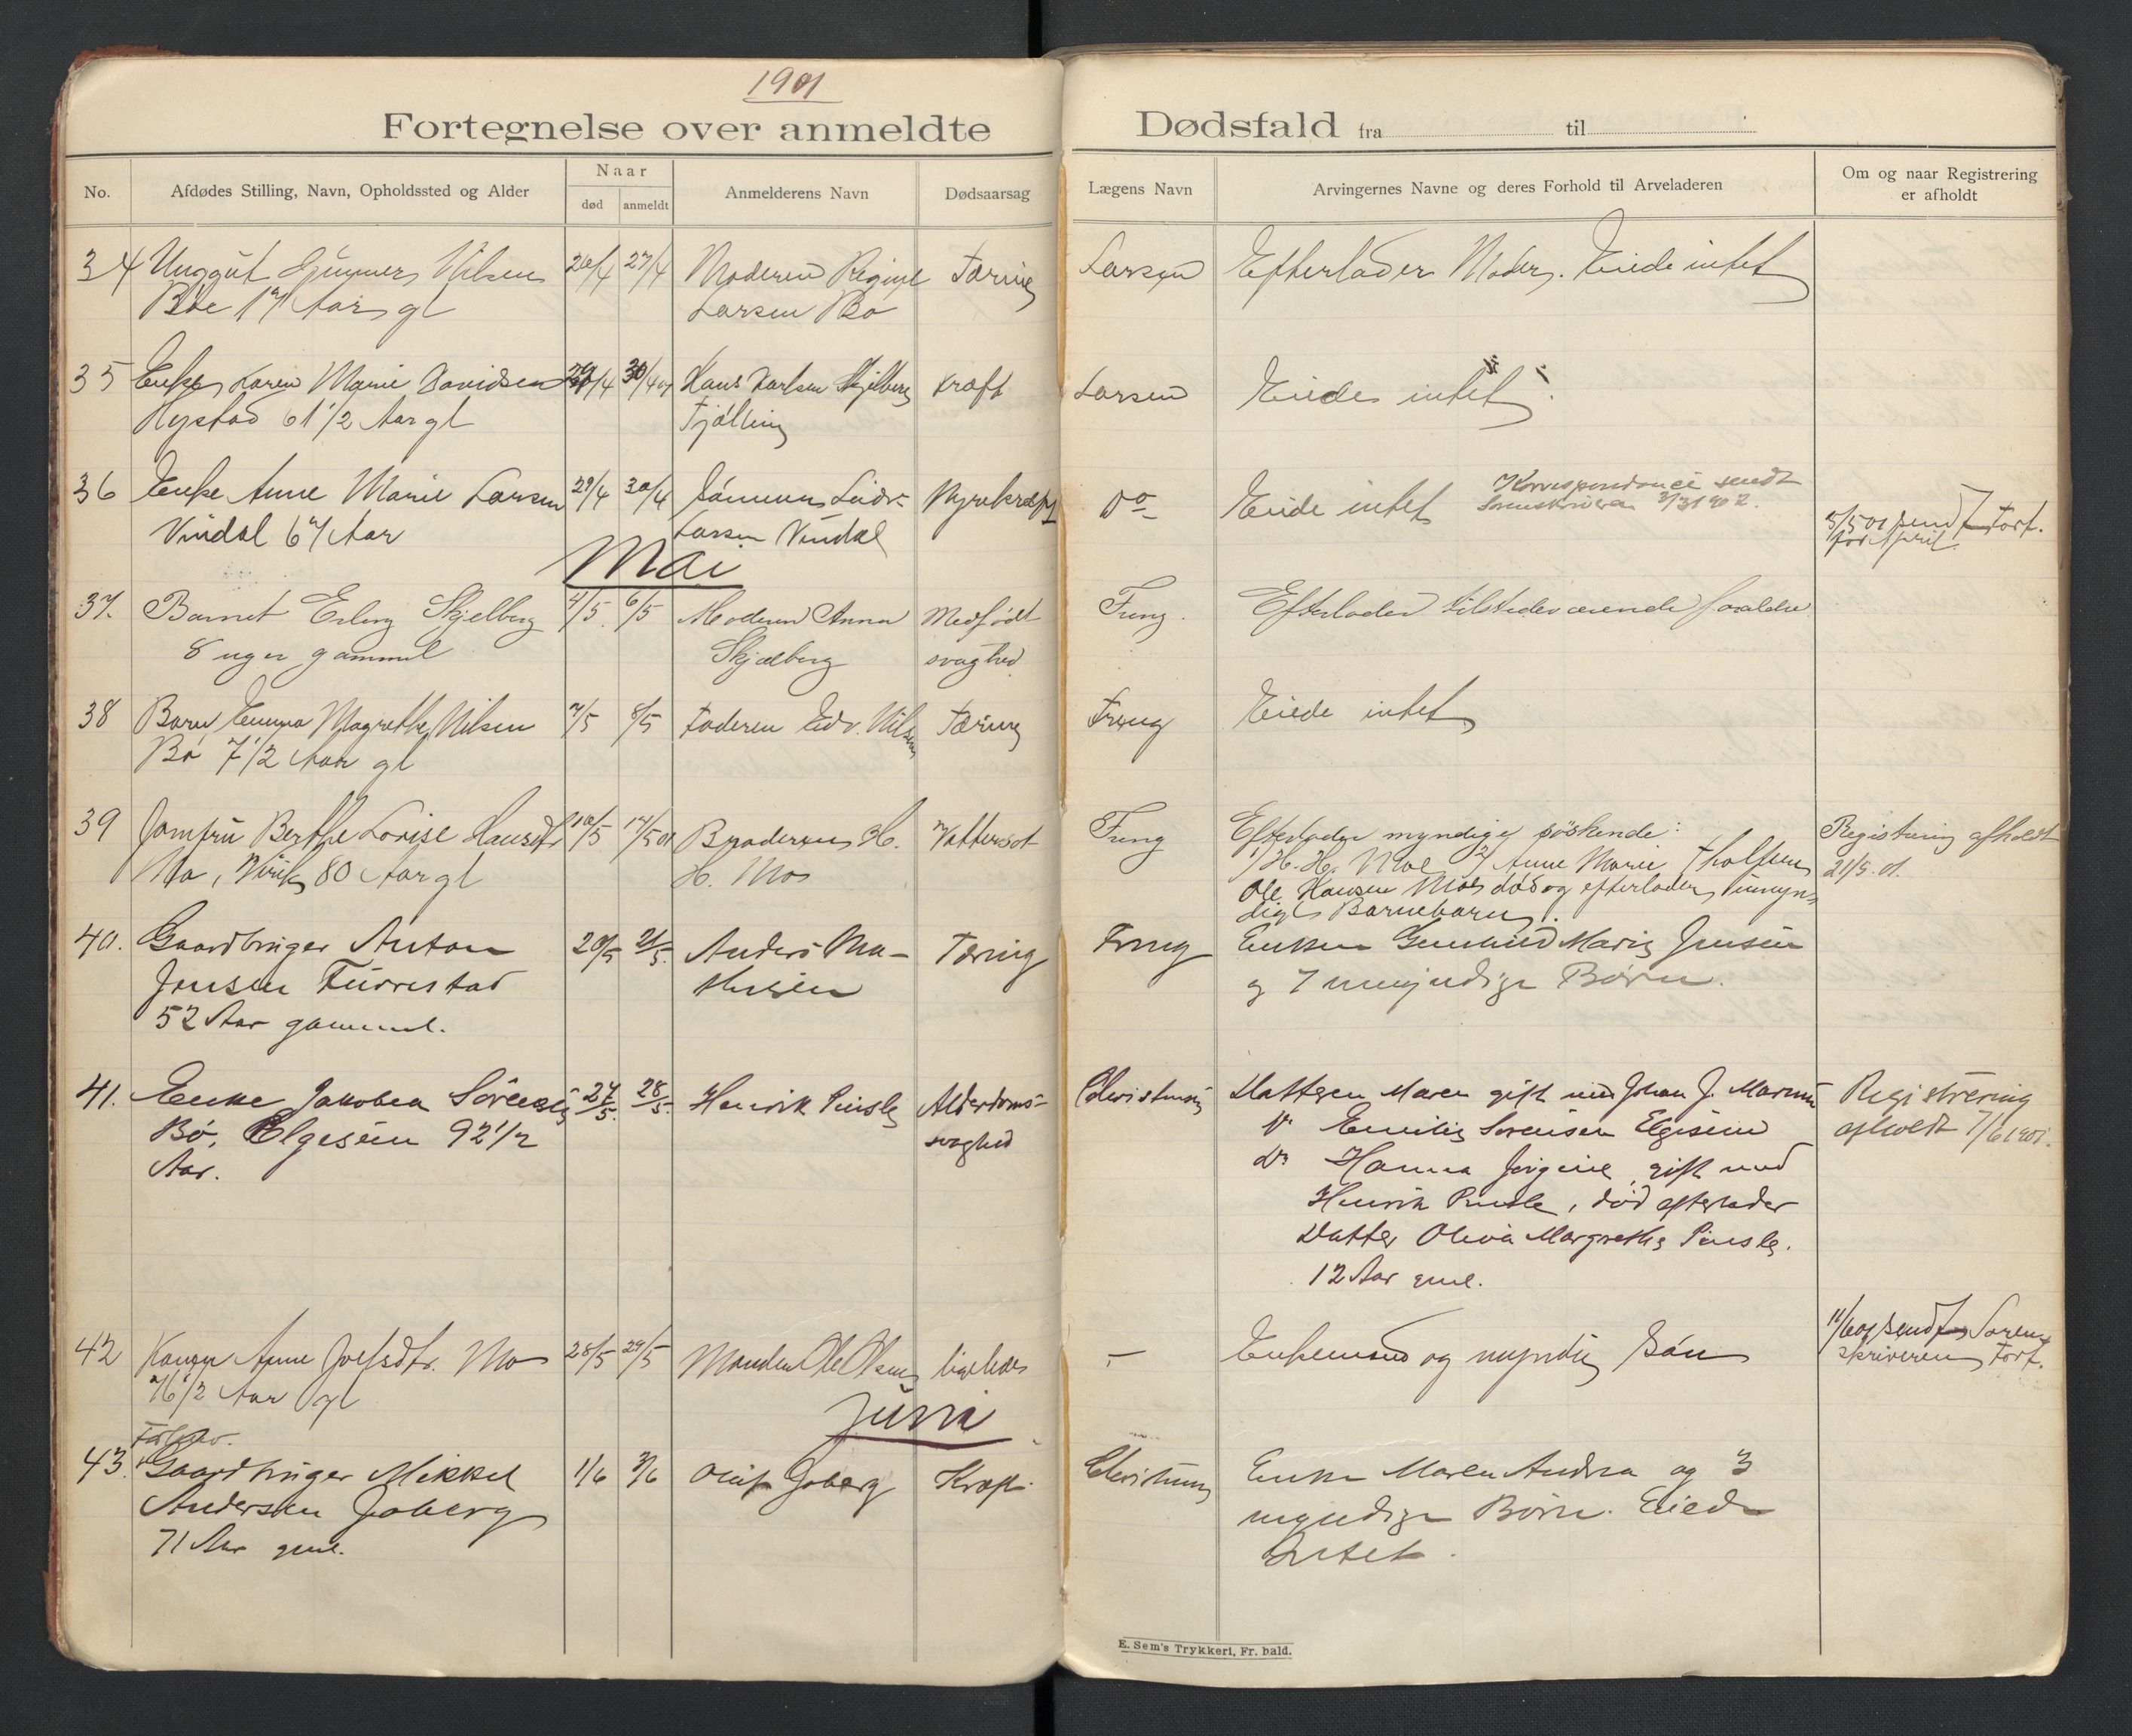 1901
Fortegnelse over anmeldte Dødsfald fra til
No. Afdødes Stilling, Navn, Opholdssted og Alder Naar død anmeldt Anmelderens Navn Dødsaarsag Lægens Navn Arvingernes Navne og deres Forhold til Arveladeren Om og naar Registrering er afholdt
34 Unggut Gunner Nilsen 20/4 27/4 Moderen Regine Tæring Larsen Efterlader Moder. Eiede intet
Böe 17 Aar gl Larsen Bö
35 Enke Karen Marie Davidsen 30/4 Hans Karlsen Skjelberg Kraft Larsen Eiede intet
Nystad 61 1/2 Aar gl Tjölling
36 Enke Anne Marie Larsen 29/4 30/4 Larsen Vindal Do Eiede intet Korrespondance sendt
Sorenskriveren 3/3 1902.
Vindal 67 Aar 3/5 01 sendt Fort.
for April
Mai
37. Barnet Erling Skjelberg 4/5. 6/5 Moderen Anna Medfödt Freng. Efterlader tilstedeværende foraldre
8 uger gammel Skjælberg svaghed.
38 Barn Emma Magrethe Nilsen 7/5 8/5 Faderen Edv. Nilsen Tæring Freng Eiede intet
Bö 7 1/2 Aar gl
39 Jomfru Berthe Lovise Hansdtr 10/5 17/5 01 Broderen H. Vattersot Freng Efterlader myndige söskende: Registrering afholdt
Mo, Virik 80 Aar gl H. Mo 1/ H. H. Moe 2/ Anne Marie 21/5. 01.
Ole Hansen Moe död og efterlader umyn-
dige Barnebarn.
40. Gaardbruger Anton 20/5 21/5. Anders Ma- Tæring Freng Enken Gunhild Marie Jensen
Jensen Furrestad thisen og 7 umyndige Børn.
52 Aar gammel.
41. Enke Jakobea Sörensen 27/5. 28/5. Henrik Pinsle Alderdoms- Christensen Datteren Maren gift med Johan J. Registrering
Bö, Elgesem 92 1/2 svaghed Do Emilie Sorensen Elgesem afholdt 7/6 1901.
Aar. Do Hanna Jörgine, gift med
Henrik Pinsle, död efterlader
Datter Oliva Margrethe Pinsle.
12 Aar gml.
42 Konen Anne Joelsdtr. Mo 28/5 29/5 Manden Ole Olsen ligeledes — Enkemand og myndig Sön 11/6 01 sendt Soren-
skriveren Fort.
76 1/2 Aar gl
Juni
43. Gaardbruger Mikkel 1/6 3/6 Oluf Joberg Kræft. Christensen Enke Maren Andrea og 3
Andersen Joberg myndige Börn. Eiede
71 Aar gml. Intet.
E. Sem's Trykkeri, Fr. hald.